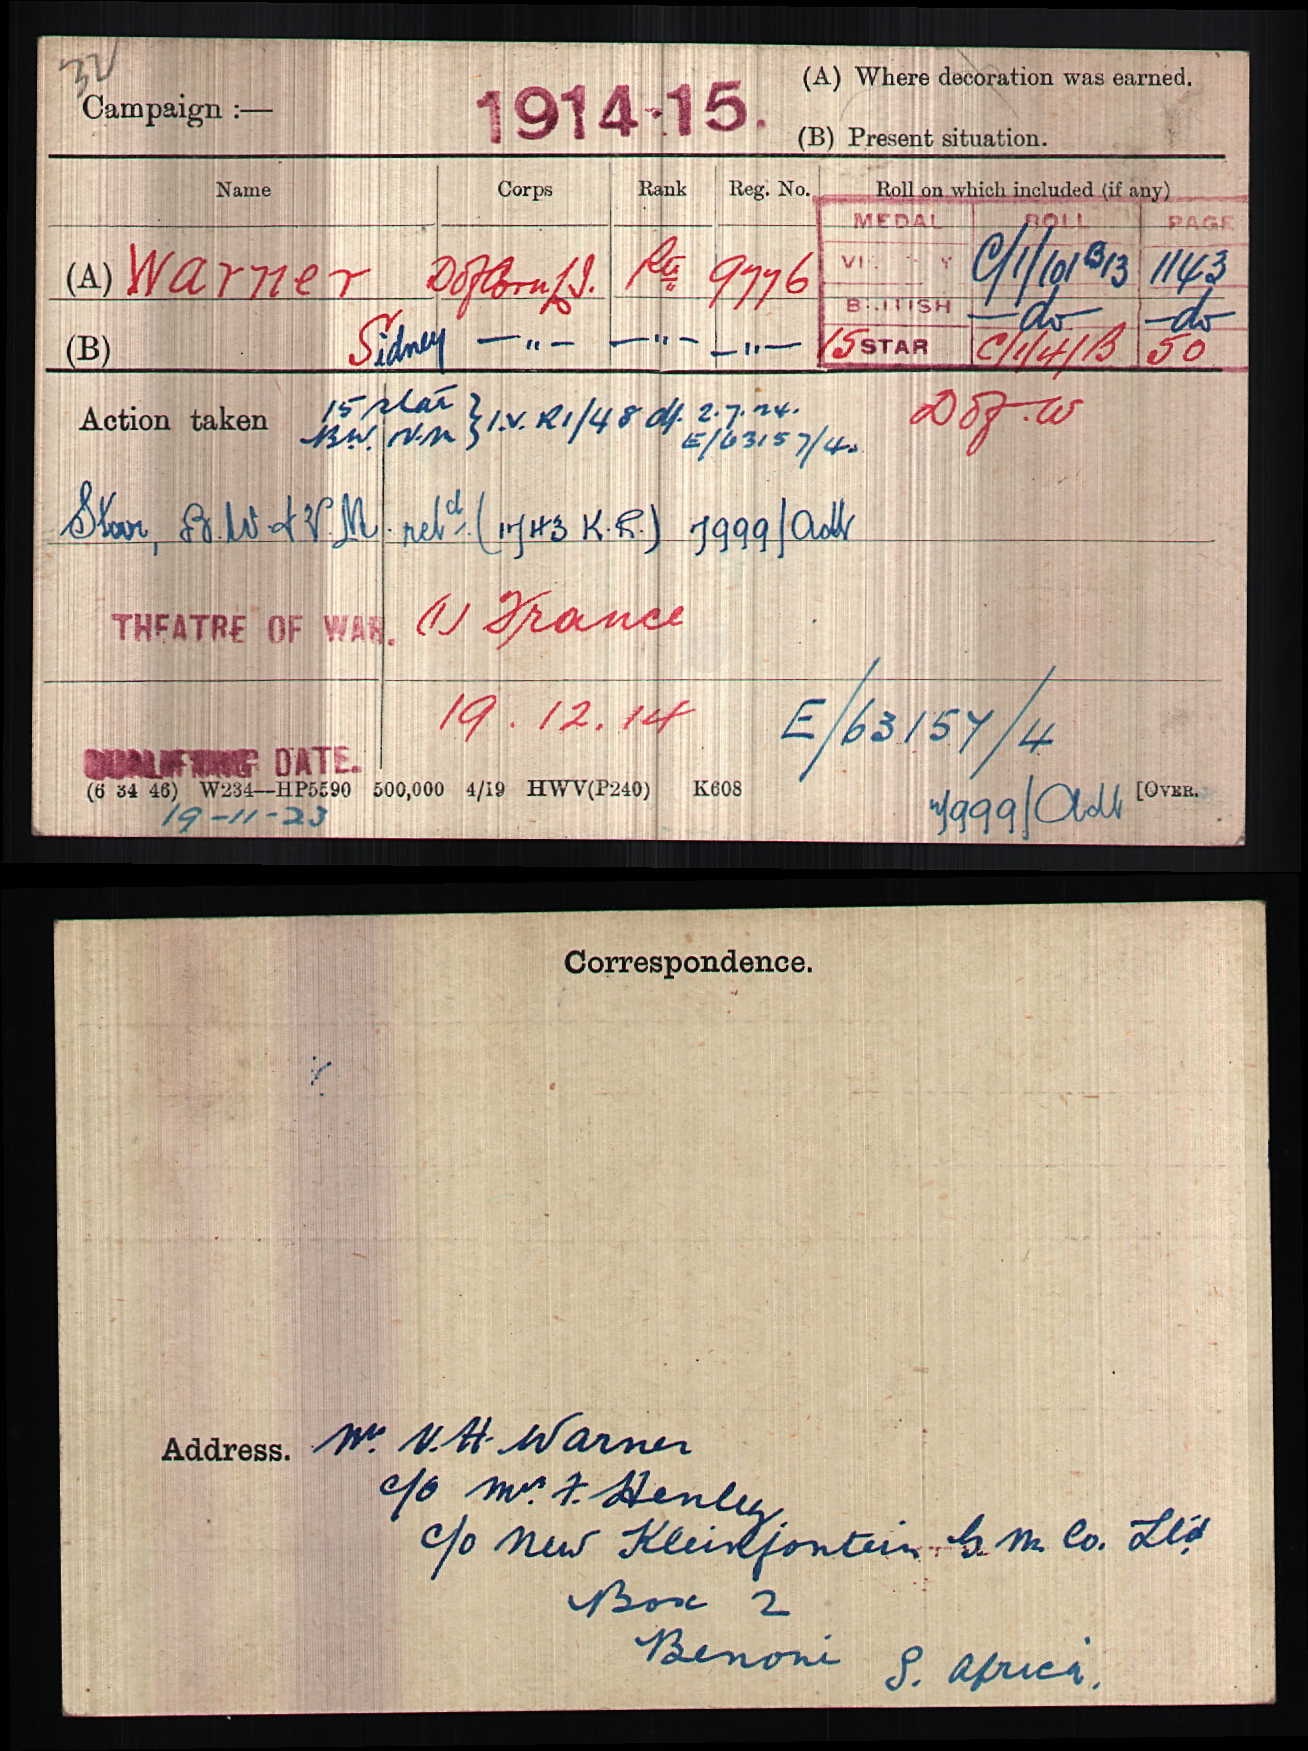 32
(A) Where decoration was earned.
Campaign :— 1914-15.
(B) Present situation.
Name Corps Rank Reg. No. Roll on which included (if any)
MEDAL ROLL PAGE
(A) Warner D of Corn. L.I. Pte 9776 VI Y C/1/101 B13 1143
BRITISH —do— —do—
(B) Sidney —"— —"— —"— 15 STAR C/1/4/B 50
Action taken 15 Star } I.V. R1/48 df. 2.7.24. D of W
B.W. V.M E/63157/4.
Star, B.W & V.M. retd. (1743 K.R.) 7999/Adt
THEATRE OF WAR. (1) France
19.12.14 E/63157/4
QUALIFYING DATE.
(6 34 46) W234—HP5590 500,000 4/19 HWV(P240) K608 [OVER.
19-11-23 7999/Adt
Correspondence.
Address. Mr. V.H. Warner
c/o Mrs. F. Henley
c/o New Kleinfontein G. M. Co. Ltd
Box 2
Benoni S. Africa.